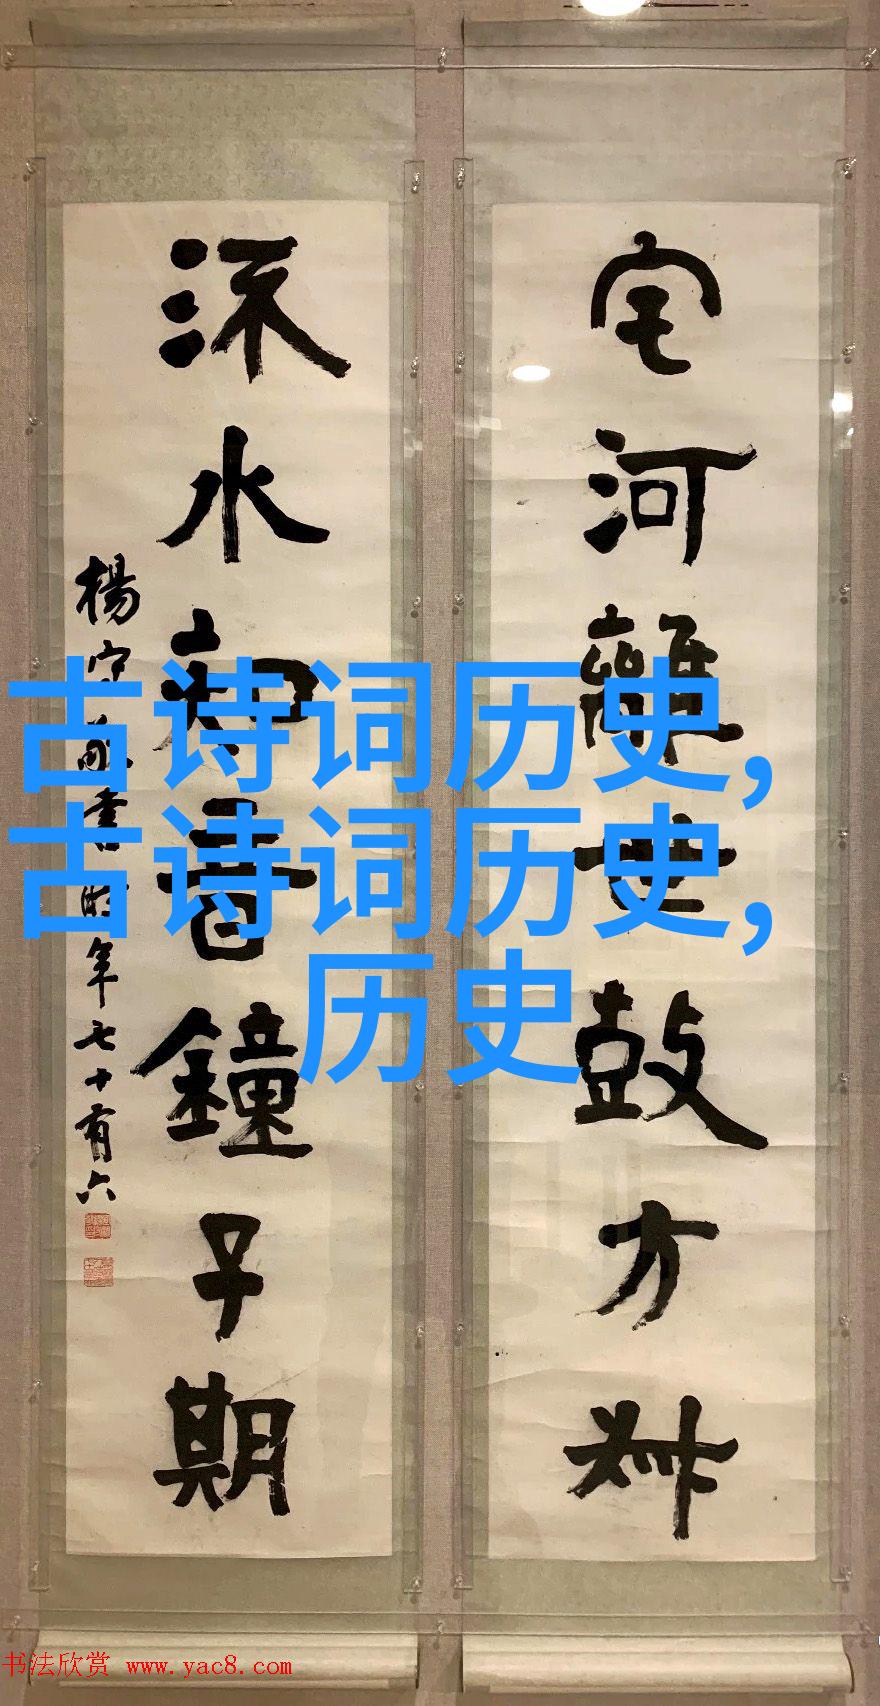 宅河離世鼓方叔
水知音鐘子期
楊守敬書時年七十有六
古诗词历史,
古诗词历史,
历史
书法欣赏 www.yac8.com